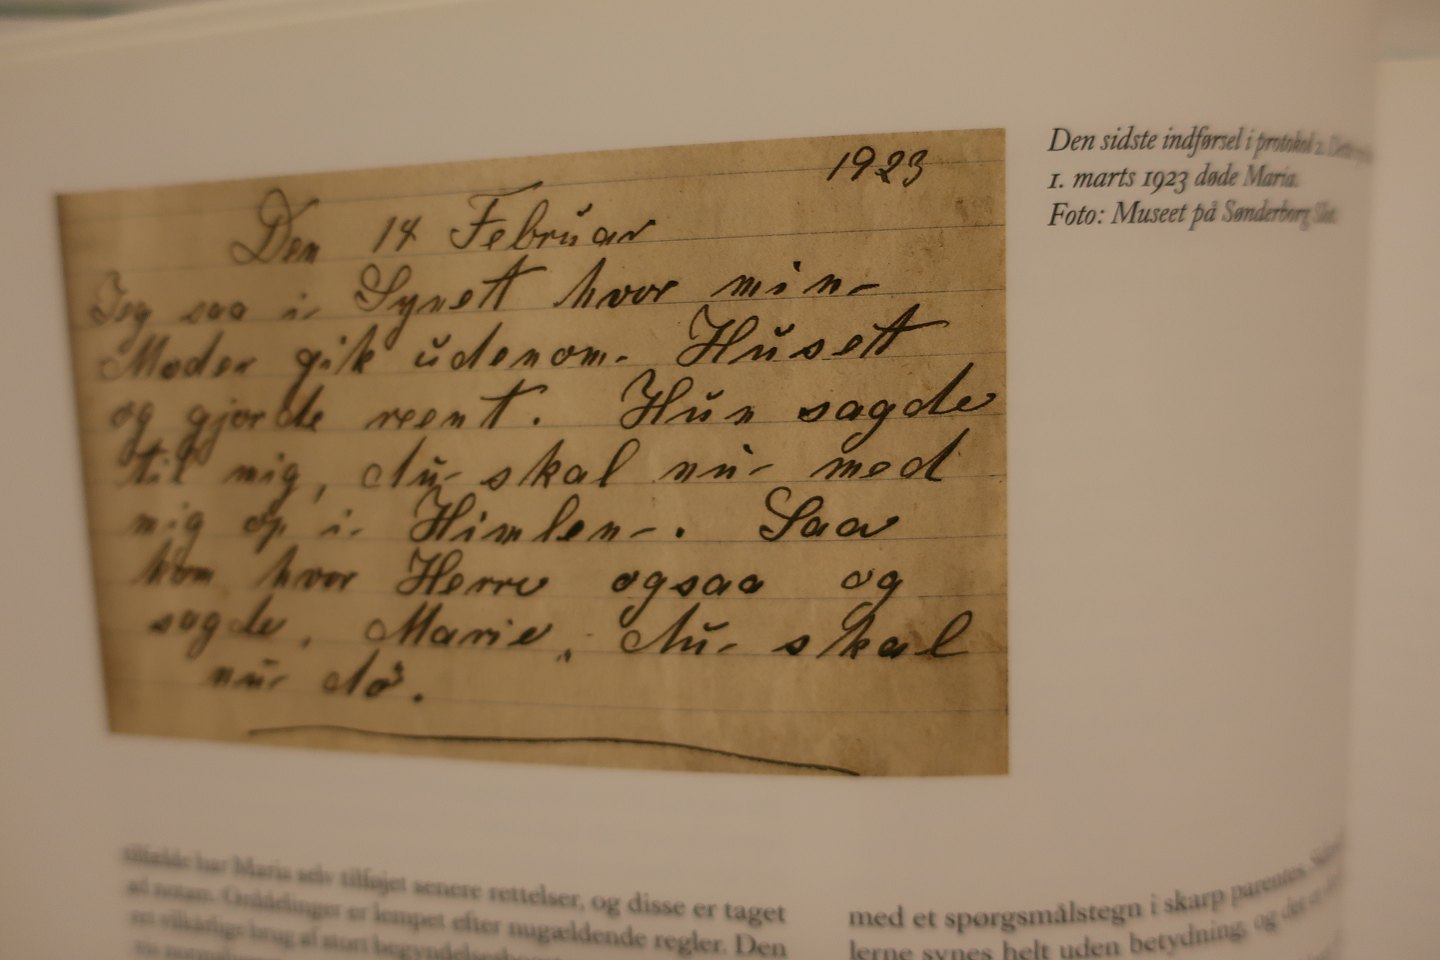 1923
Den 14 Februar
Jeg saa i Synett hvor min
Moder gik udenom. Husett
og gjorde reent. Hun sagde
til mig, du skal nu med
mig op i Himlen. Saa
kom hvor Herre ogsaa og
sagde, Marie, du skal
nu dø.
Den sidste indførsel i protokol 2.
1. marts 1923 døde Maria.
Foto: Museet på Sønderborg Slot
tilfælde har Maria selv tilføjet senere rettelser, og disse er taget
ad notam. Orddelinger er lempet efter nugældende regler. Den
brug af stort
med et spørgsmålstegn i skarp parentes.
lerne synes helt uden betydning, og det er